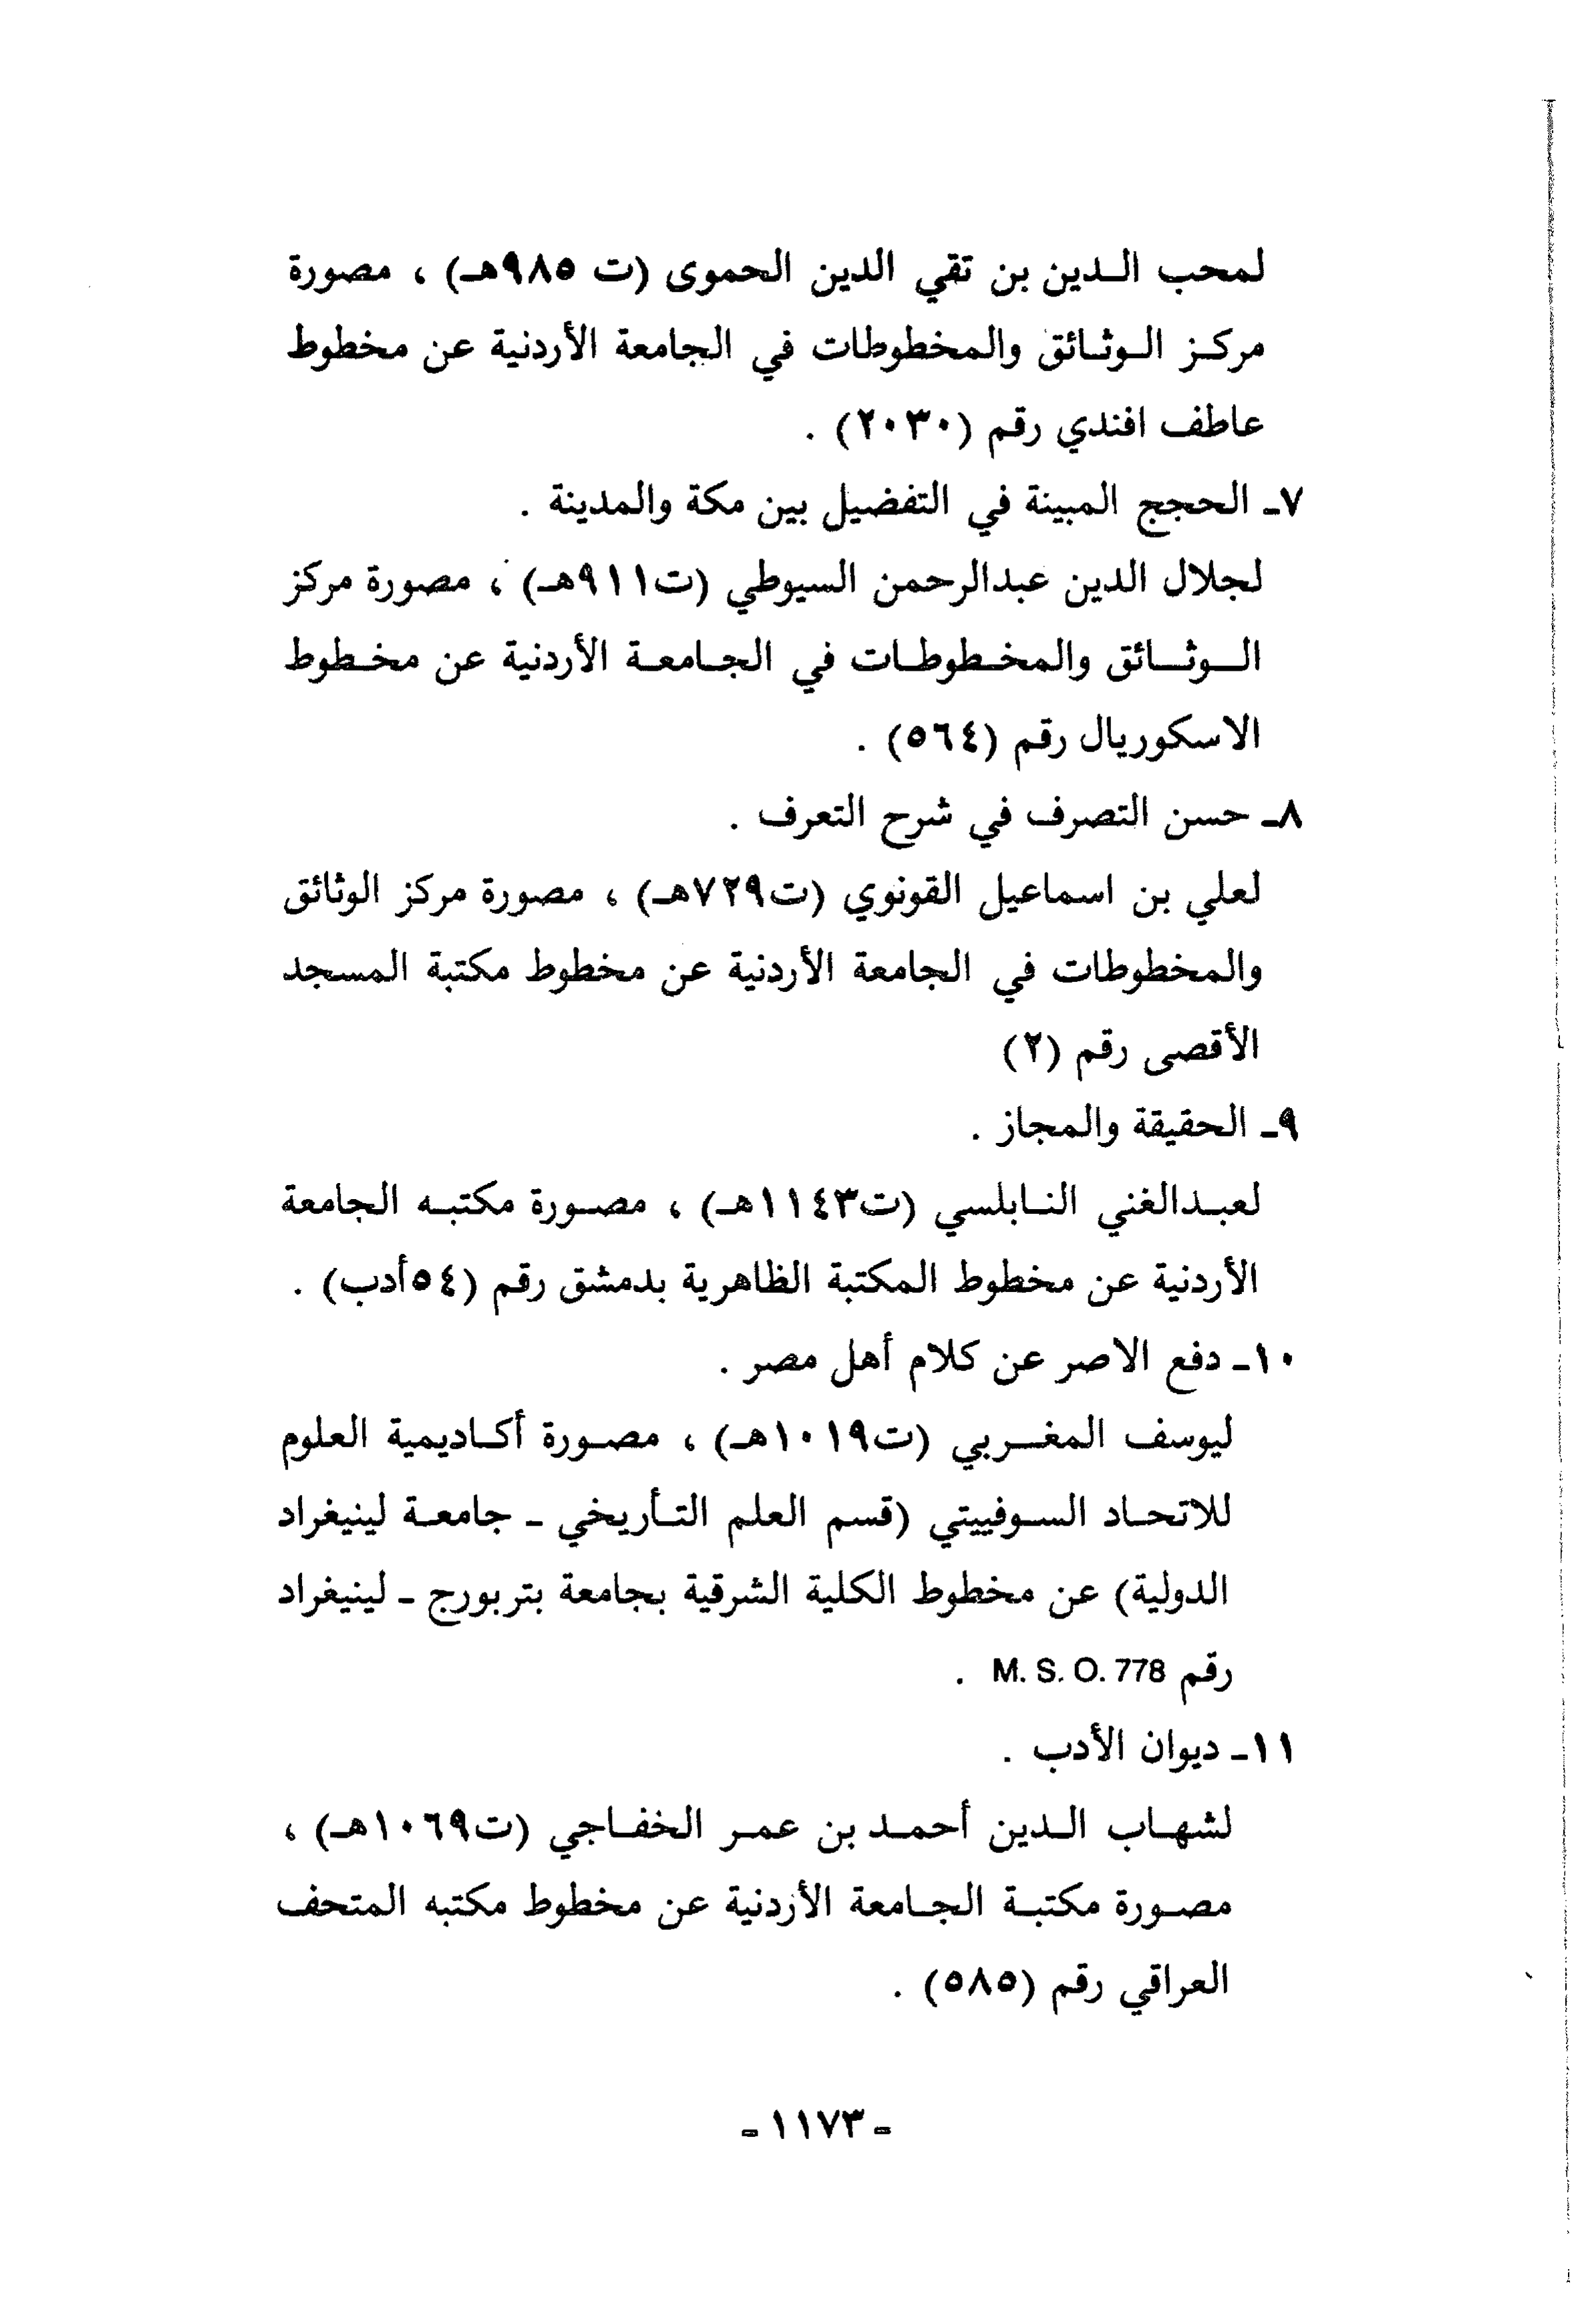 لمحب الـدين بن تقي الدين الحموى (ت ٩٨٥هـ) ، مصورة
مركـز الـوثـائق والمخطوطات في الجامعة الأردنية عن مخطوط
عاطف افندي رقم (٢٠٣٠) .
٧ـ الحجج المبينة في التفضيل بين مكة والمدينة .
لجلال الدين عبدالرحمن السيوطي (ت٩١١هـ) ، مصورة مركز
الـوثـائق والمخـطوطـات في الجـامعـة الأردنية عن مخـطوط
الاسكوريال رقم (٥٦٤) .
٨ـ حسن التصرف في شرح التعرف .
لعلي بن اسماعيل القونوي (ت٧٢٩هـ) ، مصورة مركز الوثائق
والمخطوطات في الجامعة الأردنية عن مخطوط مكتبة المسجد
الأقصى رقم (٢)
٩ـ الحقيقة والمجاز .
لعبـدالغني النـابلسي (ت١١٤٣هـ) ، مصـورة مكتبـه الجامعة
الأردنية عن مخطوط المكتبة الظاهرية بدمشق رقم (٥٤أدب) .
١٠ـ دفع الاصر عن كلام أهل مصر .
ليوسف المغـربي (ت١٠١٩هـ) ، مصـورة أكـاديمية العلوم
للاتحـاد السـوفييتي (قسم العلم التـأريخي ـ جامعـة لينيغراد
الدولية) عن مخطوط الكلية الشرقية بجامعة بتربورج ـ لينيغراد
رقم M. S. O. 778 .
١١ـ ديوان الأدب .
لشهـاب الـدين أحمـد بن عمـر الخفـاجي (ت١٠٦٩هـ) ،
مصـورة مكتبـة الجـامعة الأردنية عن مخطوط مكتبه المتحف
العراقي رقم (٥٨٥) .
ـ ١١٧٣ ـ